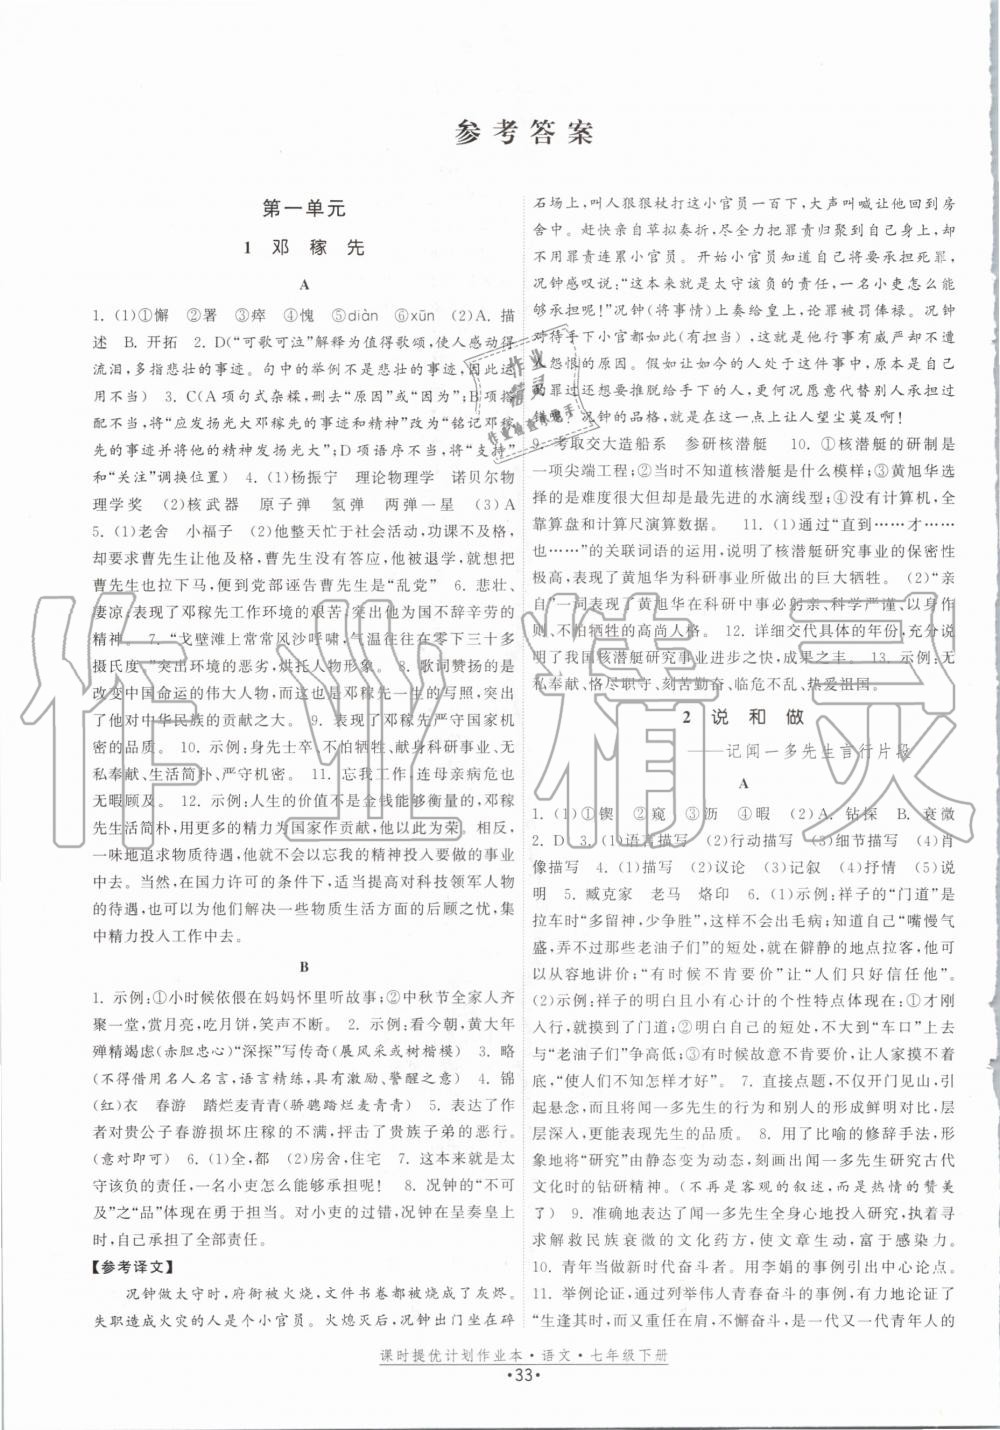 参考答案
第一单元
1 邓稼先
A
1. (1)①懈 ②署 ③瘁 ④愧 ⑤diàn ⑥xūn (2)A. 描
述 B. 开拓 2. D(“可歌可泣”解释为值得歌颂,使人感动得
流泪,多指悲壮的事迹。句中的举例不是悲壮的事迹,因此使
用不当) 3. C(A项句式杂糅,删去“原因”或“因为”;B项搭
配不当,将“应发扬光大邓稼先的事迹和精神”改为“应学习邓稼
先的事迹并将他的精神发扬光大”;D项语序不当,将“支持”
和“关注”调换位置) 4. (1)杨振宁 理论物理学 诺贝尔物
理学奖 (2)核武器 原子弹 氢弹 两弹一星 (3)A
5. (1)老舍 小福子 (2)他整天忙于社会活动,功课不及格,
却要求曹先生让他及格,曹先生没有答应,他被退学,就想把
曹先生也拉下马,便到党部诬告曹先生是“乱党” 6. 悲壮、
凄凉;表现了邓稼先工作环境的艰苦,突出他为国不辞辛劳的
精神。 7. “戈壁滩上常常风沙呼啸,气温往往在零下三十多
摄氏度”突出环境的恶劣,烘托人物形象。 8. 歌词赞扬的是
改变中国命运的伟大人物,而这正是邓稼先一生的写照,突出
了他对中华民族的贡献之大。 9. 表现了邓稼先严守国家机
密的品质。 10. 示例:身先士卒、不怕牺牲、献身科研事业、无
私奉献、生活简朴、严守机密。 11. 忘我工作、连母亲病危也
无暇顾及。 12. 示例:人生的价值不是金钱能够衡量的,邓稼
先生活简朴,用更多的精力为国家作贡献,他以此为荣。相反,
一味地追求物质待遇,他就不会有忘我的精神投入要做的事业
中去。当然,在国力许可的条件下,适当提高对科技领军人物
的待遇,也可以为他们解决一些物质生活方面的后顾之忧,集
中精力投入工作中去。
B
1. 示例:①小时候依偎在妈妈怀里听故事;②中秋节全家人齐
聚一堂,赏月亮,吃月饼,笑声不断。 2. 示例:看今朝,黄大年
殚精竭虑(赤胆忠心)“深探”写传奇(展风采或树楷模) 3. 略
(不得借用名人名言,语言精练,具有激励、警醒之意) 4. 锦
(红)衣 春游 踏烂麦青青(骄骢踏烂麦青青) 5. 表达了作
者对贵公子春游损坏庄稼的不满,抨击了贵族子弟的恶行。
(意对即可) 6. (1)全,都 (2)房舍,住宅 7. 这本来就是太
守该负的责任,一名小吏怎么能够承担呢! 8. 况钟的“不可
及”之“品”体现在勇于担当。对小吏的过错,况钟在呈奏皇上
时,自己承担了全部责任。
【参考译文】
况钟做太守时,府衙被火烧,文件书卷都被烧成了灰烬。
失职造成火灾的人是个小官员。火熄灭后,况钟出门坐在碎
石场上,叫人狠狠杖打这小官员一百下,大声叫喊让他回到房
舍中。赶快亲自草拟奏折,尽全力把罪责归聚到自己身上,却
不用罪责连累小官员。开始小官员自己知道将要承担死罪,
况钟感叹说:“这本来就是太守该负的责任,一名小吏怎么能
够承担呢!”况钟(将事情)上奏给皇上,论罪罚俸禄。况钟
对待手下小官都能(有担当),这就是他行事有威严却不遭
人怨恨的原因。假如让如今的人处于这件事中,原本是自己的
罪责还想要推脱给手下的人,更何况愿意代替别人承担罪责!
9. 考取交大造船系 参研核潜艇 10. ①核潜艇的研制是
一项尖端工程;②当时不知道核潜艇是什么模样;③黄旭华选
择的是难度很大但却是最先进的水滴线型;④没有计算机,全
靠算盘和计算尺演算数据。 11. (1)通过“直到……才……
也……”的关联词语的运用,说明了核潜艇研究事业的保密性
极高,表现了黄旭华为科研事业所做出的巨大牺牲。 (2)“亲
自”一词表现了黄旭华在科研中事必躬亲、科学严谨、以身作
则、不怕牺牲的高尚人格。 12. 详细交代具体的年份,充分说
明了我国核潜艇研究事业进步之快,成果之丰。 13. 示例:无
私奉献、恪尽职守、刻苦勤奋、临危不乱、热爱祖国。
2 说和做
——记闻一多先生言行片段
A
1. (1)①锲 ②窥 ③沥 ④暇 (2)A. 钻探 B. 衰微
2. D 3. (1)语言描写 (2)行动描写 (3)细节描写 (4)肖
像描写 4. (1)描写 (2)议论 (3)记叙 (4)抒情 (5)说
明 5. 臧克家 老马 烙印 6. (1)示例:祥子的“门道”是
拉车时“多留神,少争胜”,这样不会出毛病;知道自己“嘴慢气
盛,弄不过那些老油子们”的短处,就在僻静的地点拉客,他可
以从容地讲价;“有时候不肯要价”让“人们只好信任他”。
(2)示例:祥子的明白且小有心计的个性特点体现在:①才刚
入行,就摸到了门道;②明白自己的短处,不大到“车口”上去
与“老油子们”争高低;③与顾客有时候不讲价,让人家摸不着
底,“使人们不知怎样才好”。 7. 直接点题,不仅开门见山,引
起悬念,而且与闻一多先生的行为和别人的形成鲜明对比,层
层深入,更能表现先生的品质。 8. 用了比喻的修辞手法,形
象地将“研究”由静态变为动态,刻画出闻一多先生研究古代
文化时的钻研精神。(不再是客观的叙述,而是热情的赞美
了) 9. 准确地表达了闻一多先生全身心地投入研究,执着寻
求解救民族衰微的文化药方,使文章生动,富于感染力。
10. 青年当做新时代奋斗者。用李娟的事例引出中心论点。
11. 举例论证,通过列举伟人青春奋斗的事例,有力地论证了
“生逢其时,而又重任在肩,不懈奋斗,是一代又一代青年人的
课时提优计划作业本·语文·七年级下册
·33·
作业精灵